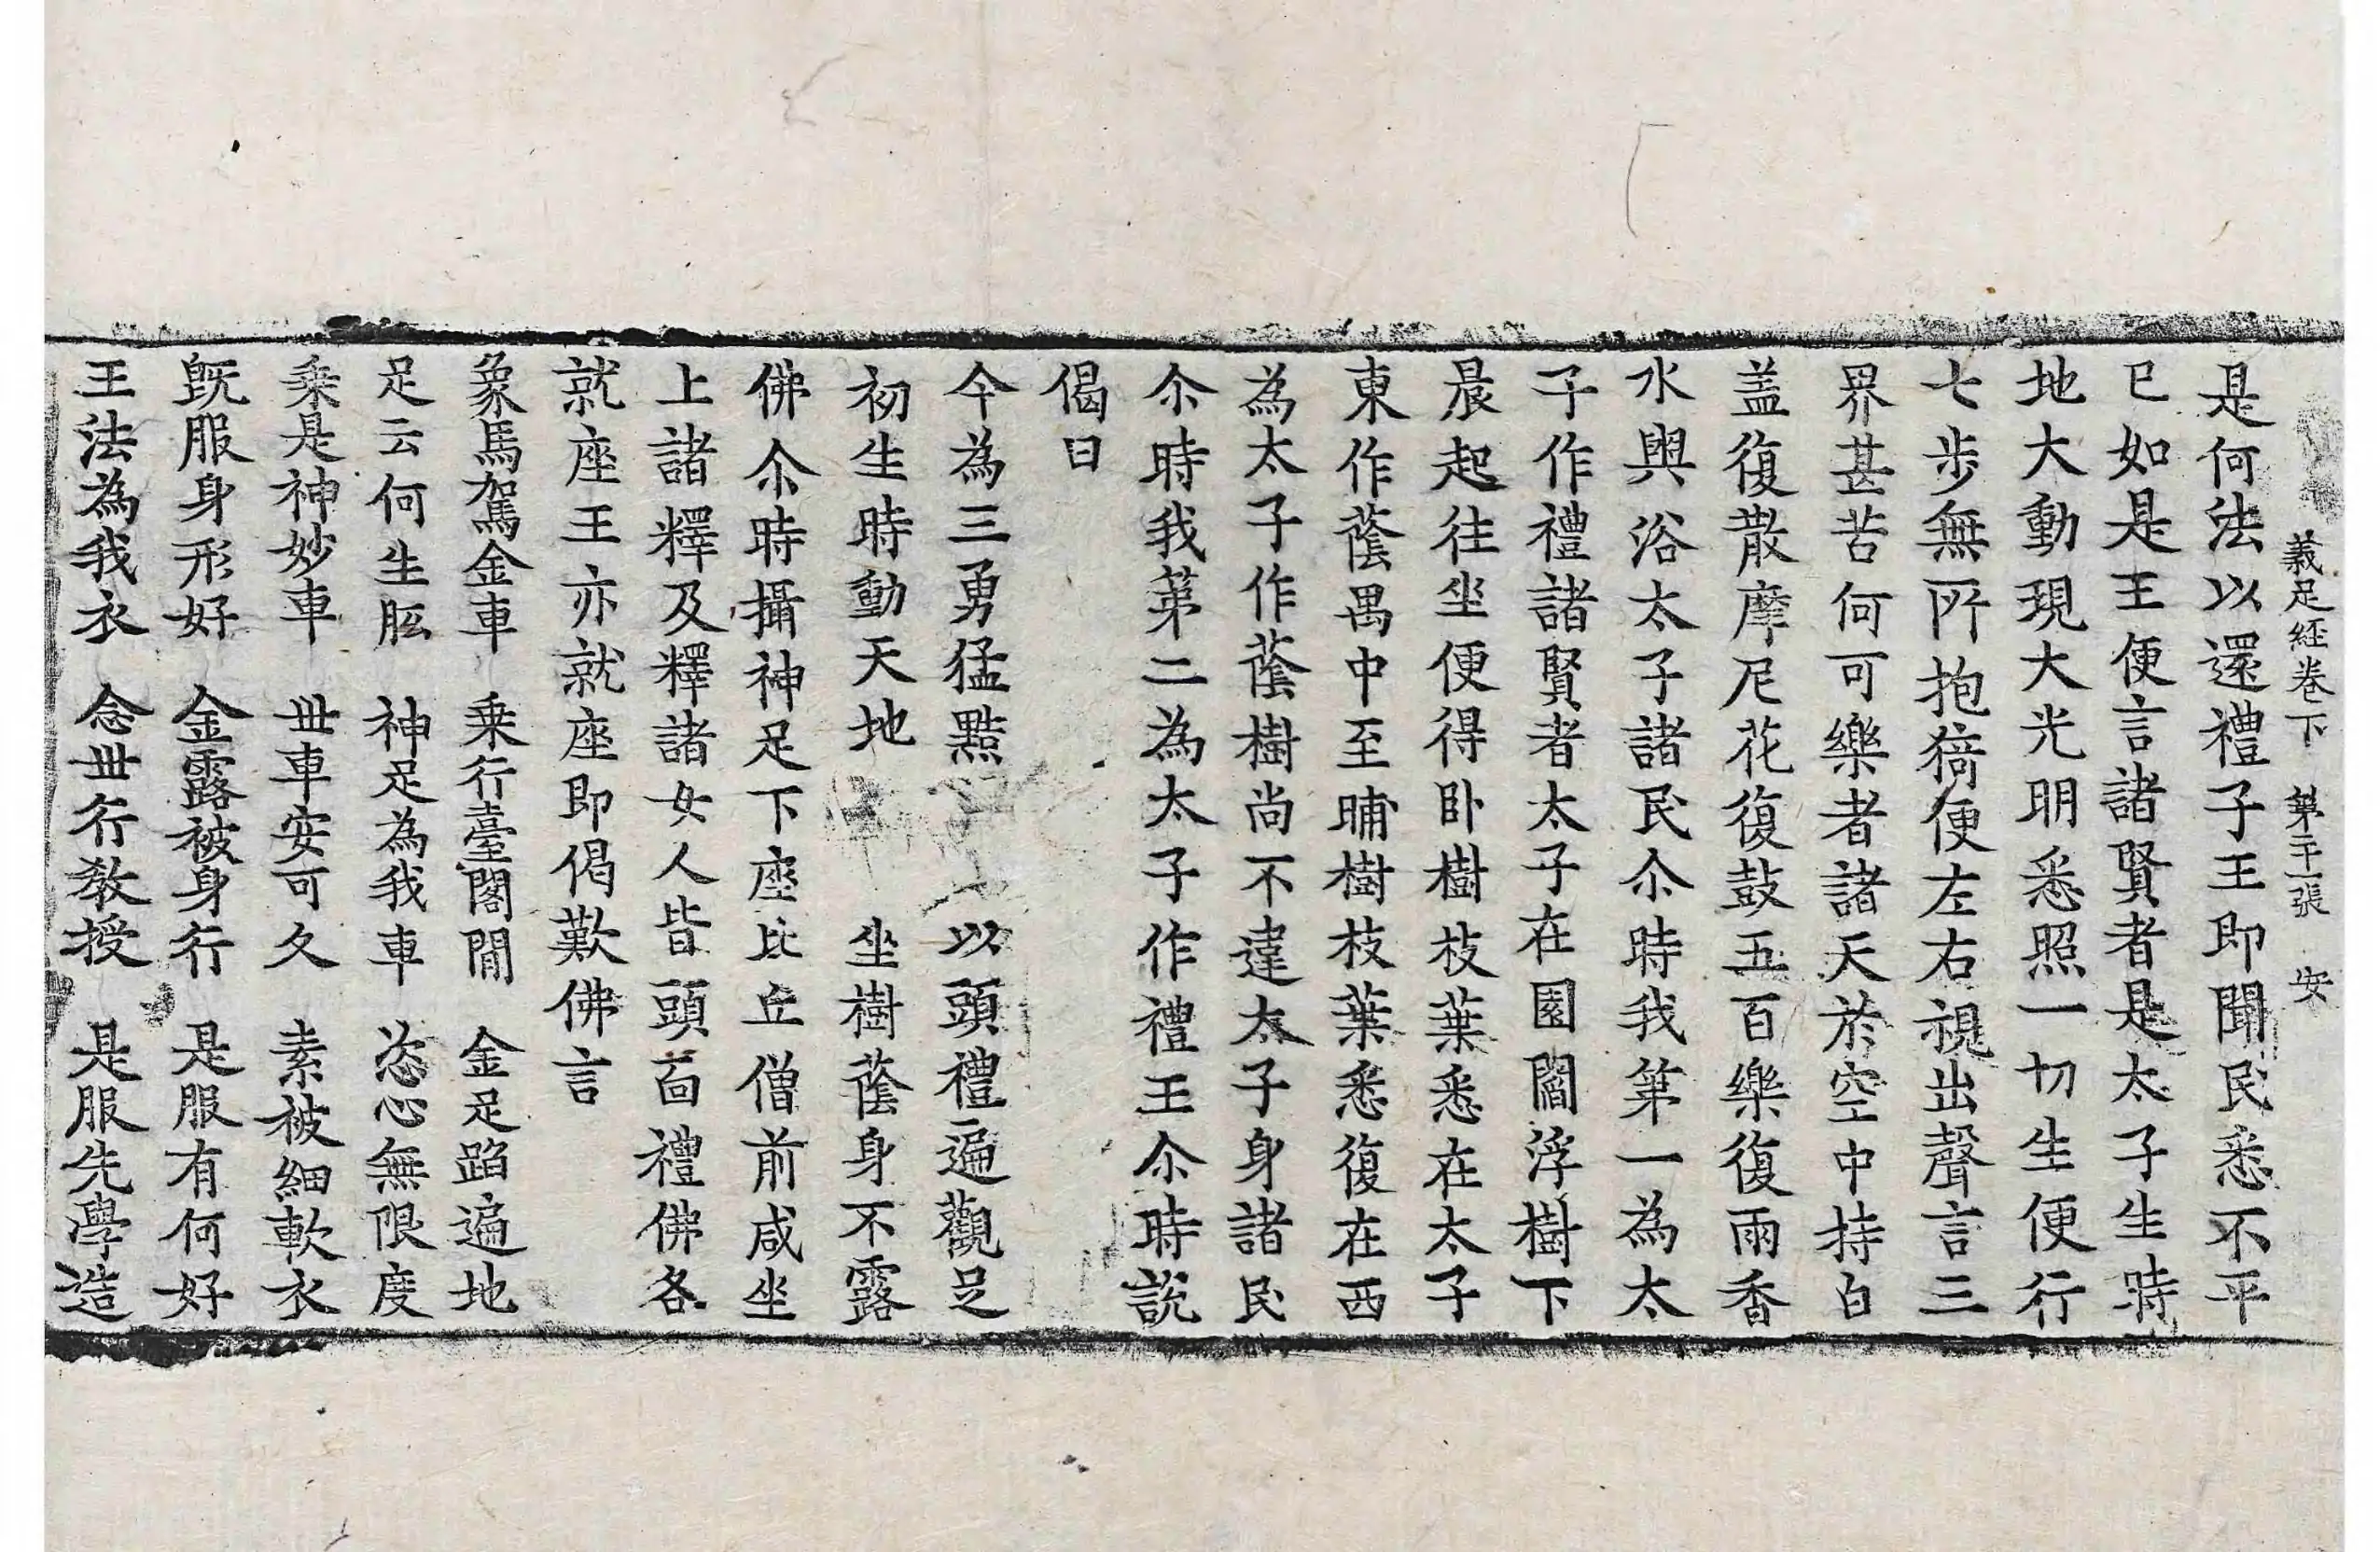 義足經卷下　第二十一張　安
是何法以還禮子王即聞民悉不平
已如是王便言諸賢者是太子生時
地大動現大光明悉照一切生便行
七步無所抱猗便左右視出聲言三
界甚苦何可樂者諸天於空中持白
盖復散摩尼花復鼓五百樂復雨香
水與浴太子諸民尒時我第一為太
子作禮諸賢者太子在園閻浮樹下
晨起往坐便得卧樹枝葉悉在太子
東作蔭禺中至晡樹枝葉悉復在西
為太子作蔭樹尚不違太子身諸民
尒時我第二為太子作禮王尒時說
偈曰
今為三勇猛黠　以頭禮遍觀足
初生時動天地　坐樹蔭身不露
佛尒時攝神足下座比丘僧前咸坐
上諸釋及釋諸女人皆頭面禮佛各
就座王亦就座即偈歎佛言
象馬駕金車　乘行臺閣閒　金足蹈遍地
足云何生胝　神足為我車　恣心無限度
乘是神妙車　丗車安可久　素被細軟衣
旣服身形好　金露被身行　是服有何好
王法為我衣　念丗行教授　是服先學造